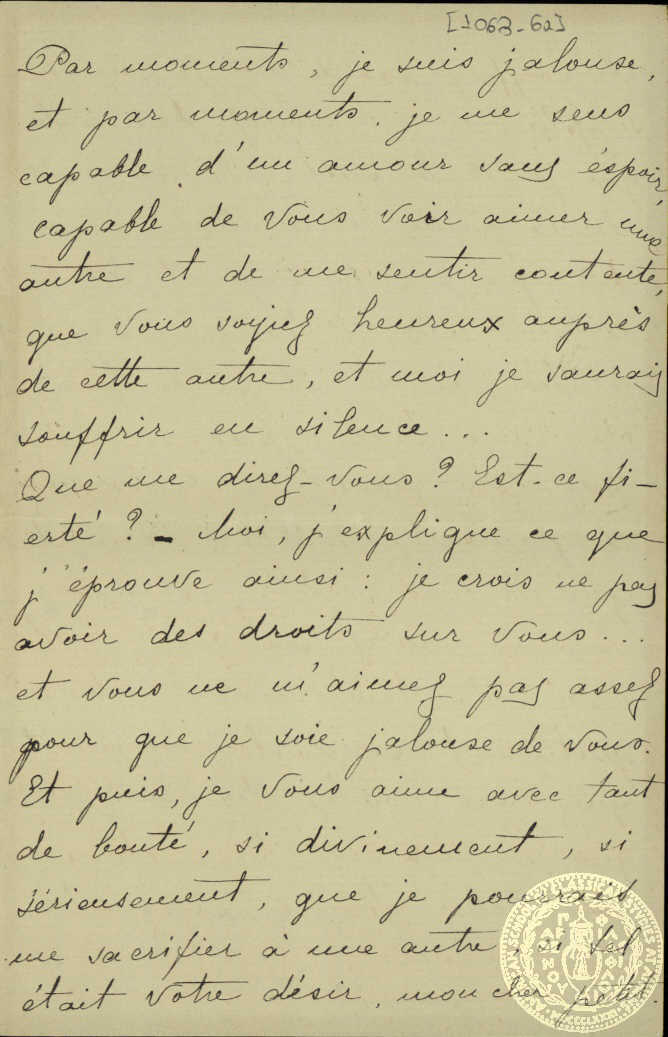 [1063-62]
Par moments, je suis jalouse,
et par moments, je me sens
capable d'un amour sans éspoir,
capable de vous voir aimer une
autre et de me sentir contente,
que vous soyiez heureux auprès
de cette autre, et moi je saurais
souffrir en silence...
Que me direz-vous? Est-ce fi-
erté? - Moi, j'explique ce que
j'éprouve ainsi: je crois ne pas
avoir des droits sur vous...
et vous ne m'aimez pas assez
pour que je soie jalouse de vous.
Et puis, je vous aime avec tant
de bonté, si divinement, si
sérieusement, que je pourrais
me sacrifier à une autre, si tel
était votre désir, mon cher petit.